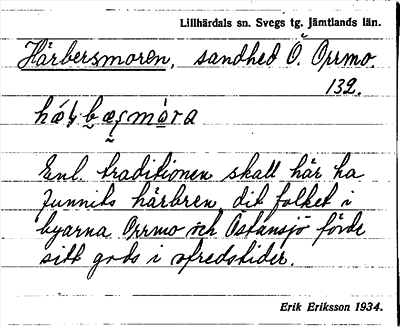 Lillhärdals sn. Svegs tg. Jämtlands län.
Härbersmoren, sandhed Ö. Orrmo.
132.
Enl. traditionen skall här ha
funnits härbren dit folket i
byarna Orrmo och Östansjö förde
sitt gods i ofredstider.
Erik Eriksson 1934.